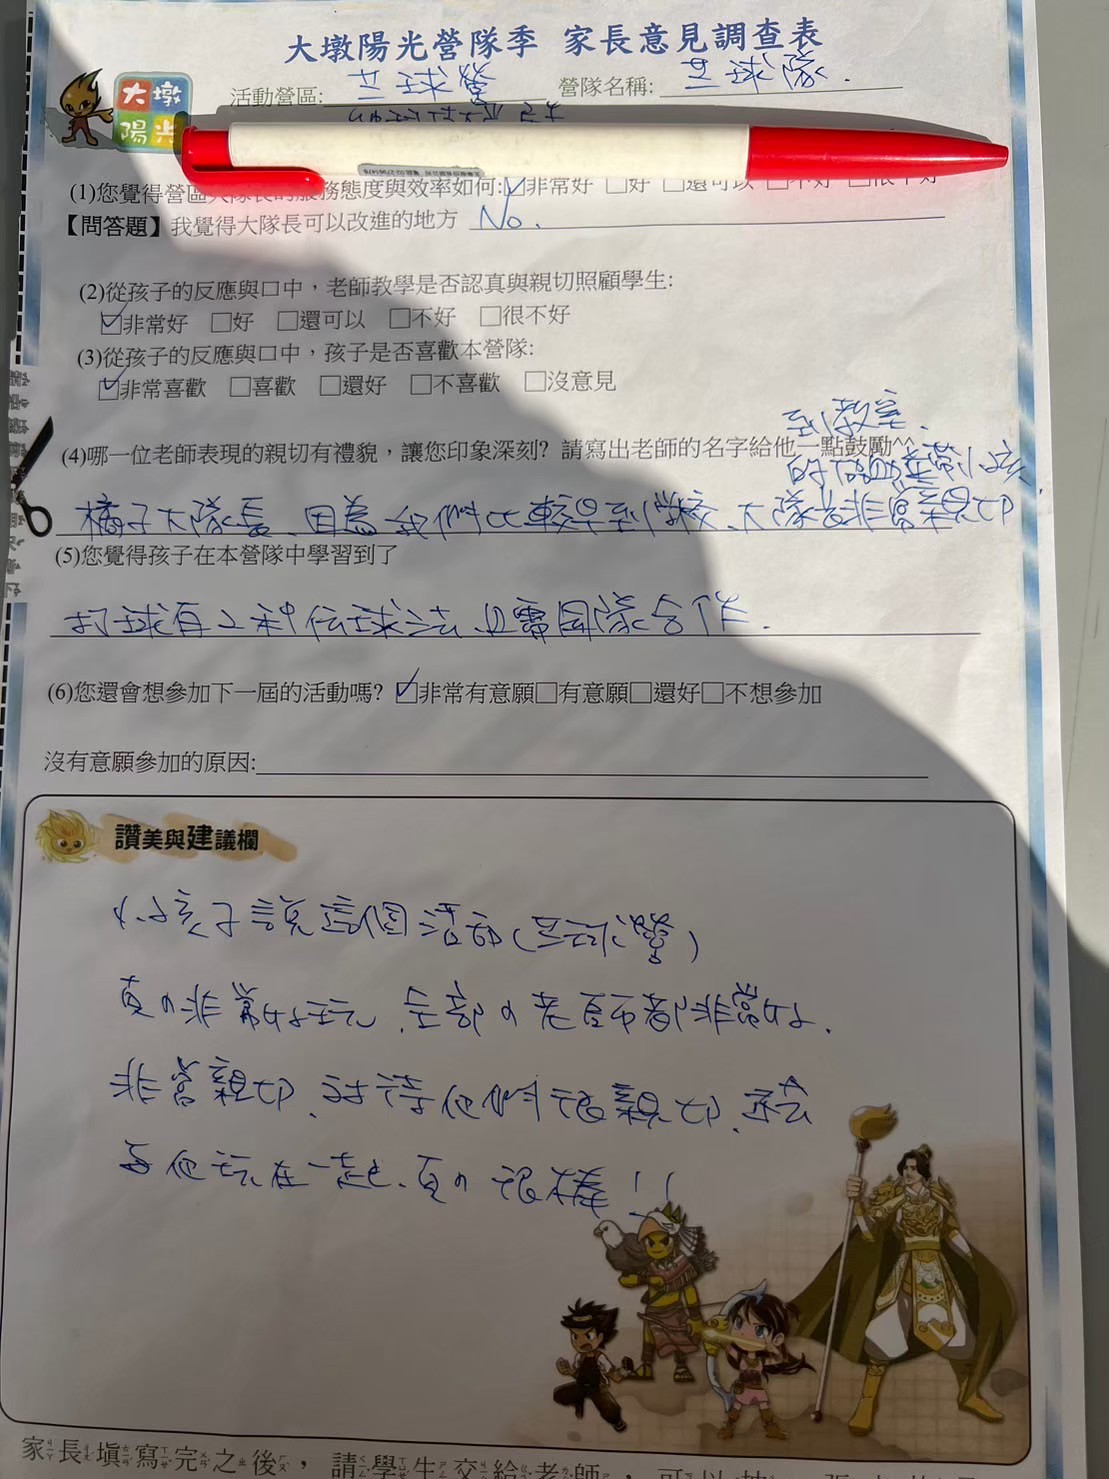 大墩陽光營隊季 家長意見調查表
大墩
陽光
活動營區: 芝球營 營隊名稱: 芝球隊.
(1)您覺得營區大隊長的服務態度與效率如何:☑非常好 □好 □還可以 □不好 □很不好
【問答題】我覺得大隊長可以改進的地方 No.
(2)從孩子的反應與口中，老師教學是否認真與親切照顧學生:
☑非常好 □好 □還可以 □不好 □很不好
(3)從孩子的反應與口中，孩子是否喜歡本營隊:
☑非常喜歡 □喜歡 □還好 □不喜歡 □沒意見
到教室.
(4)哪一位老師表現的親切有禮貌，讓您印象深刻? 請寫出老師的名字給他一點鼓勵^^
橘子大隊長、因為我們比較早到學校、大隊長非常親切
(5)您覺得孩子在本營隊中學習到了
打球有2種传球法 且需团隊合作.
(6)您還會想參加下一屆的活動嗎? ☑非常有意願□有意願□還好□不想參加
沒有意願參加的原因:
讚美與建議欄
小孩子說這個活動(芝球營)
真的非常好玩、全部的老師都非常好.
非常親切、对待他們很親切、還会
与他玩在一起、真的很棒!!
家長填寫完之後，請學生交給老師，可以